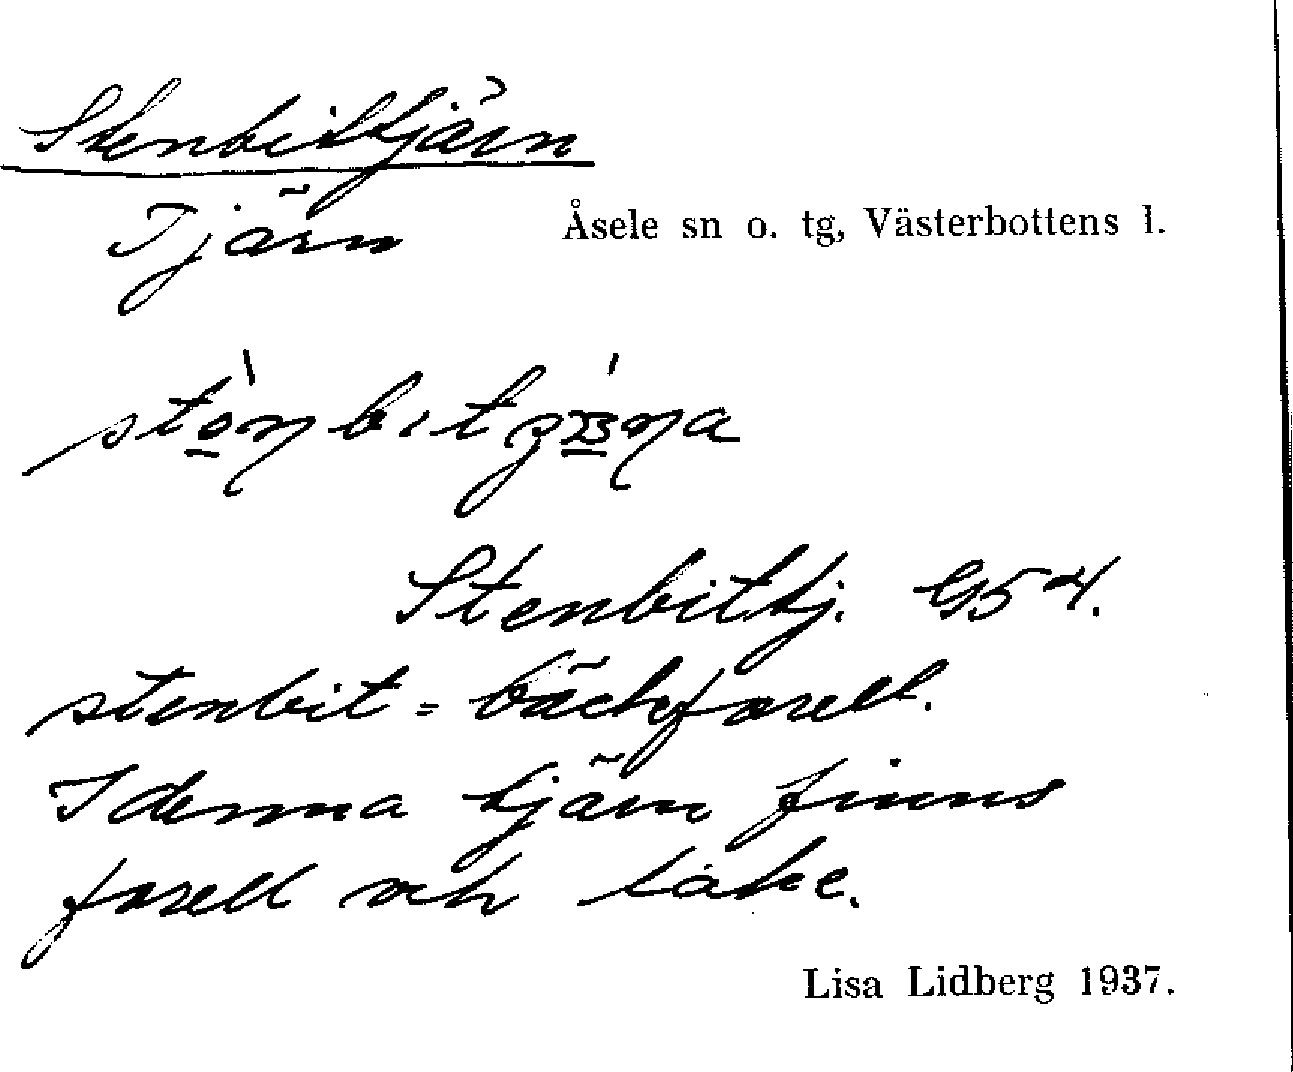 Stenbittjärn
Tjärn
Åsele sn o. tg, Västerbottens l.
Stenbittj. G5
stenbit = bäckforell.
I denna tjärn finns
forell och lake.
Lisa Lidberg 1937.